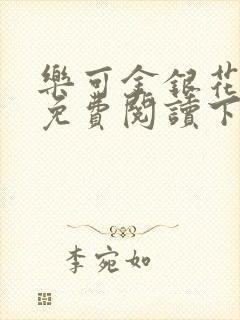 樂可金銀花
免費閱讀下
李宛如